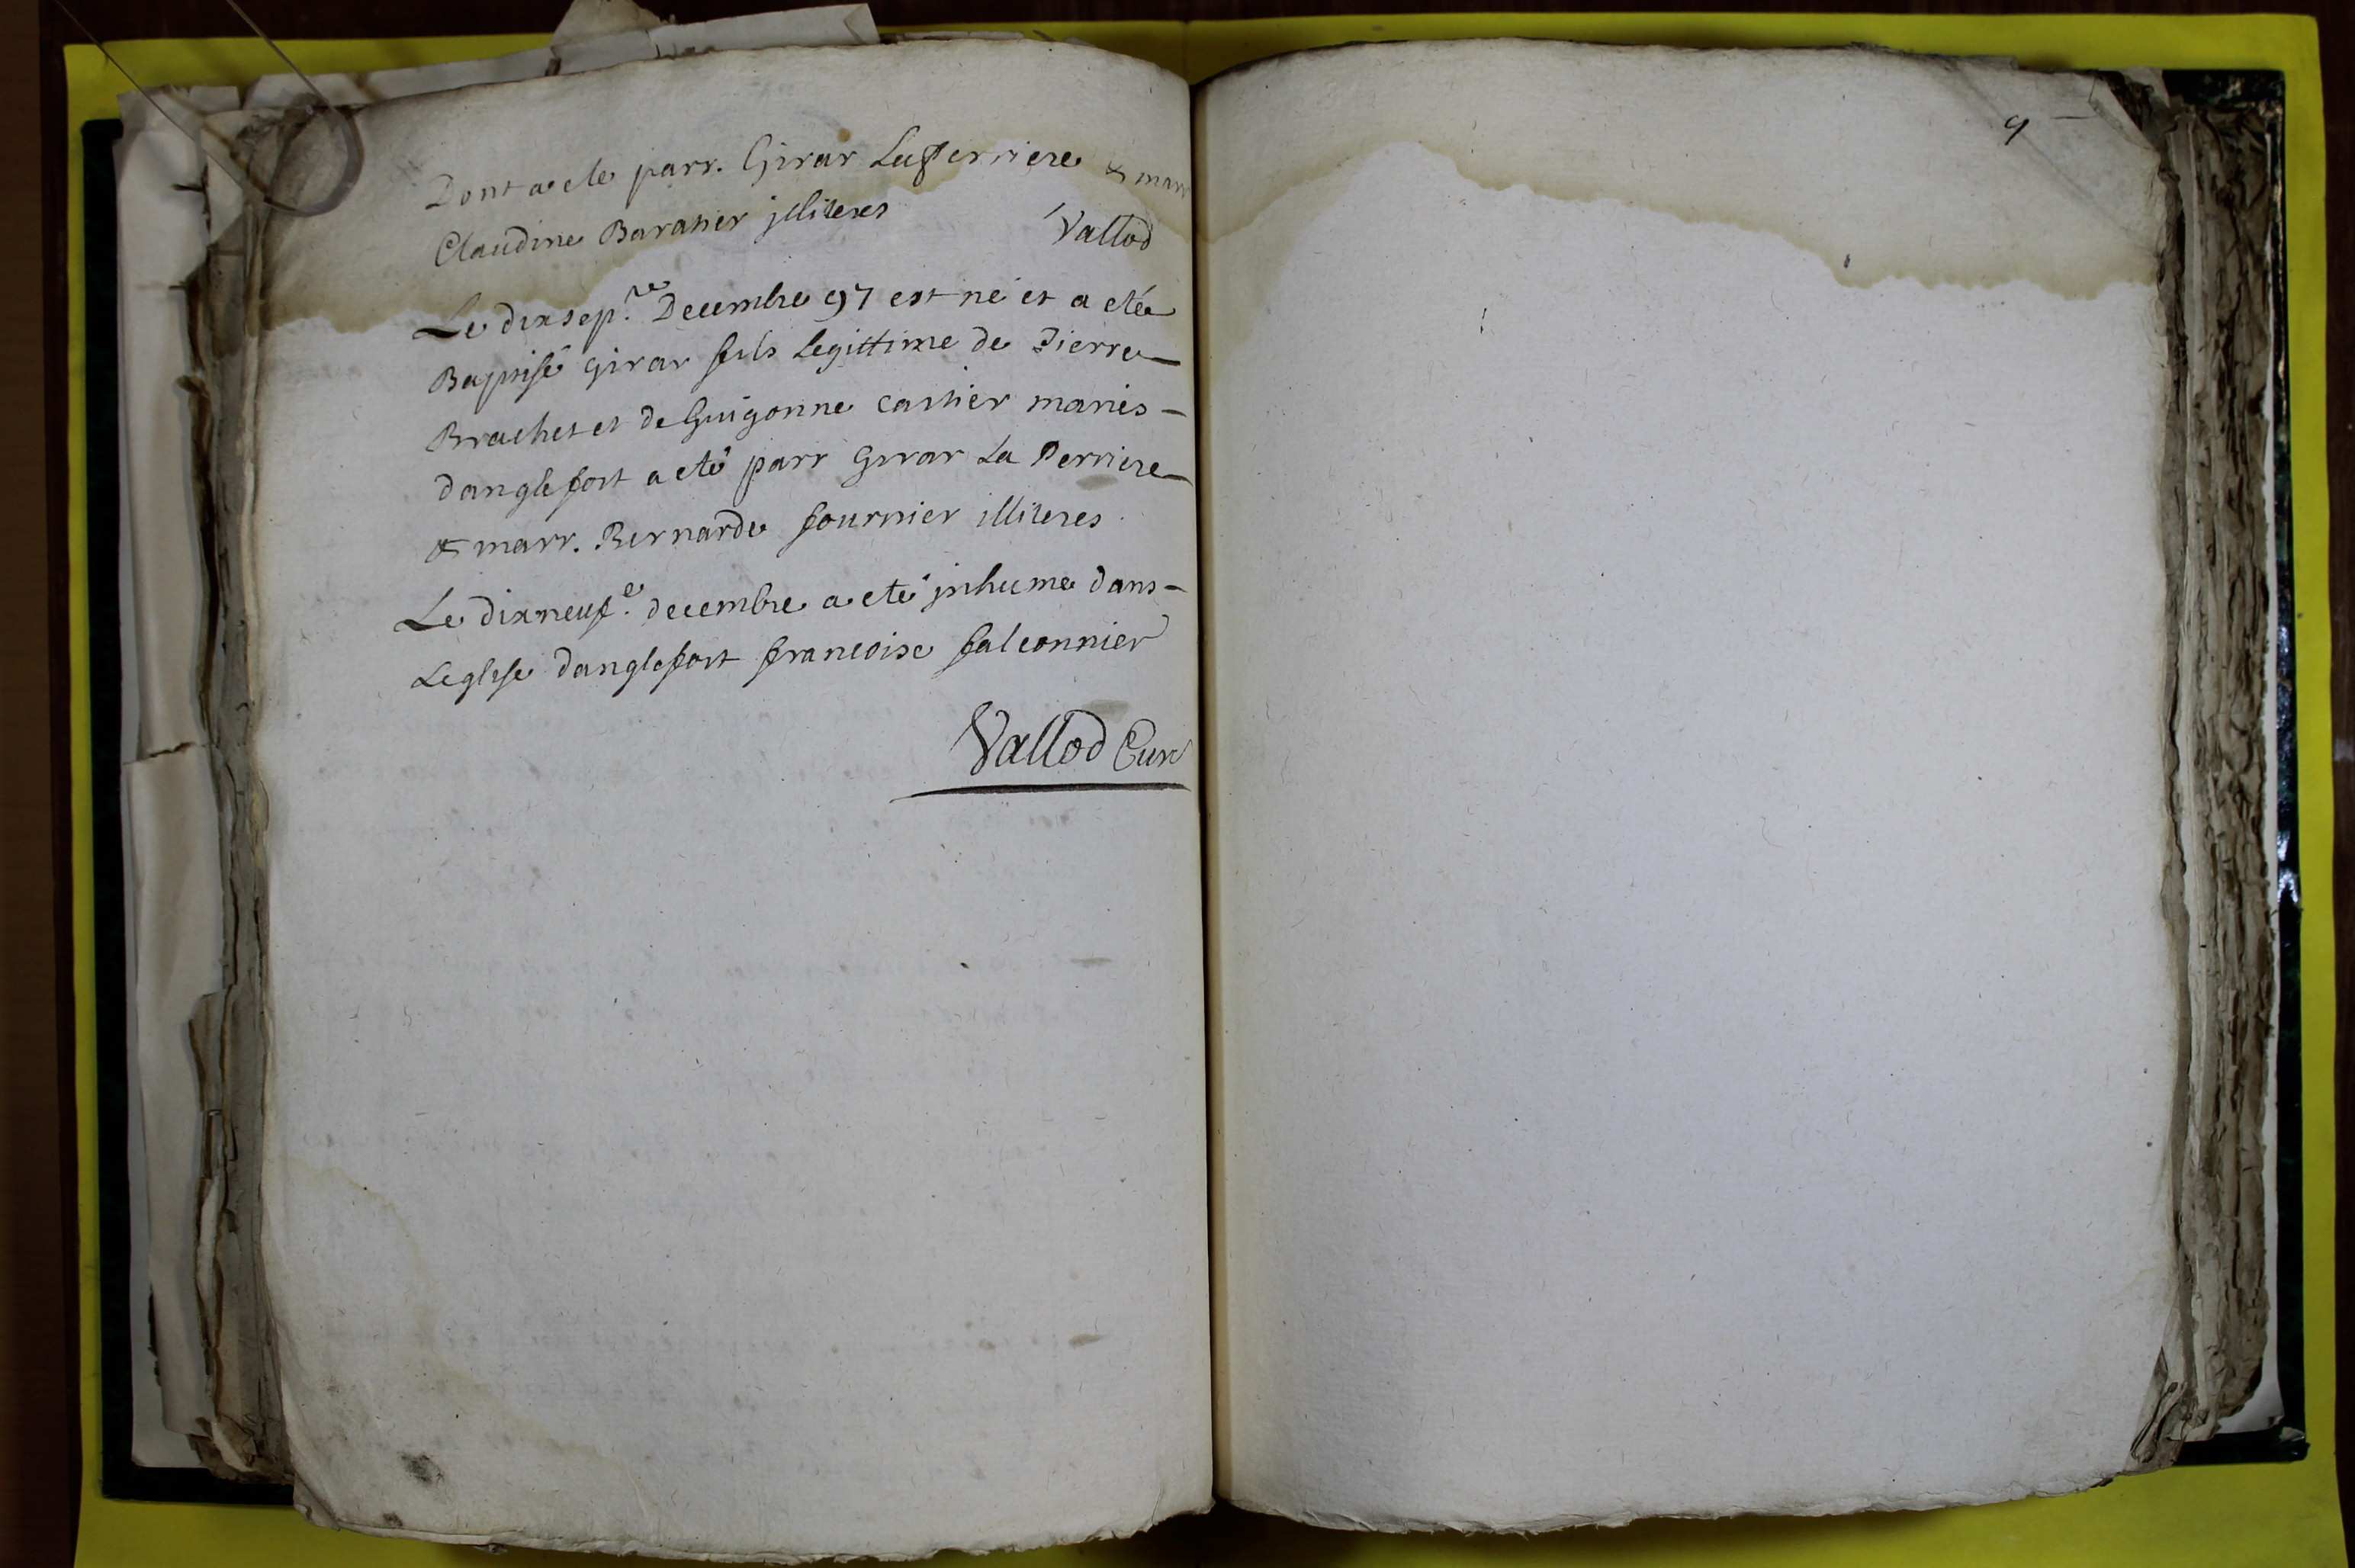 Dont a ete parr. Girar La perriere & marr
Claudine Baratier jlliteres
Vallod
Le dixsep.me Decembre 97 est né et a eté
Baptisé girar fils Legittime de Pierre
Brachet et de Guigonne cartier mariés
danglefort a eté parr Girar La Perriere
& marr. Bernarde fournier illiteres
Le dixneuf.e decembre a eté jnhume dans
Leglise danglefort francoise falconnier
Vallod Curé
9